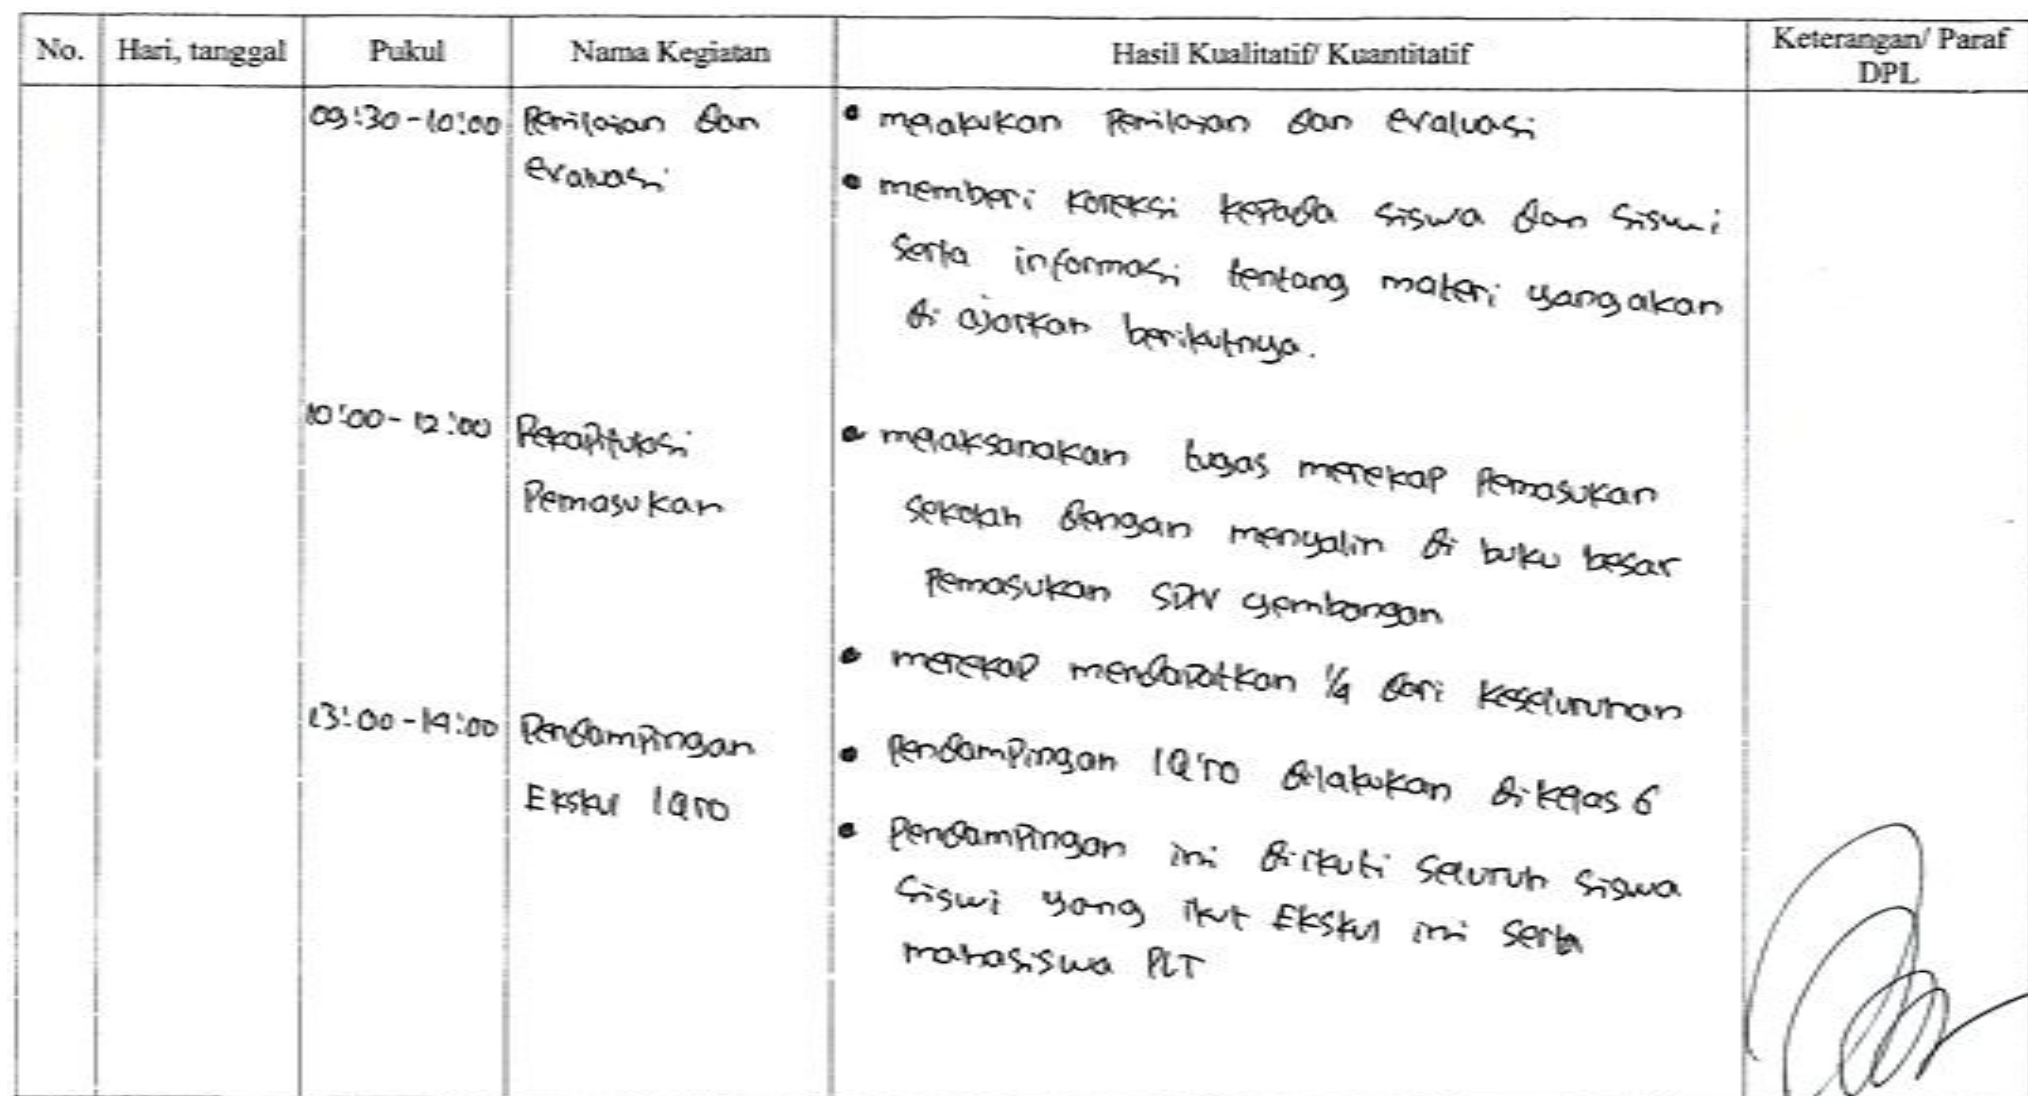 No. Hari, tanggal Pukul Nama Kegiatan Hasil Kualitatif/ Kuantitatif Keterangan/ Paraf DPL
09:30-10:00 Penilaian dan evaluasi
• melakukan Penilaian dan evaluasi
• memberi koreksi kepada siswa dan siswi
serta informasi tentang materi yang akan
di ajarkan berikutnya.
10:00-12:00 Rekapitulasi
Pemasukan
• melaksanakan tugas merekap Pemasukan
sekolah dengan menyalin di buku besar
Pemasukan SDN gembongan
• merekap mendapatkan 1/4 dari keseluruhan
13:00-14:00 Pendampingan
Ekskul IQro
• Pendampingan IQ'ro dilakukan di kelas 6
• Pendampingan ini diikuti seluruh siswa
siswi yang ikut Ekskul ini serta
mahasiswa PLT